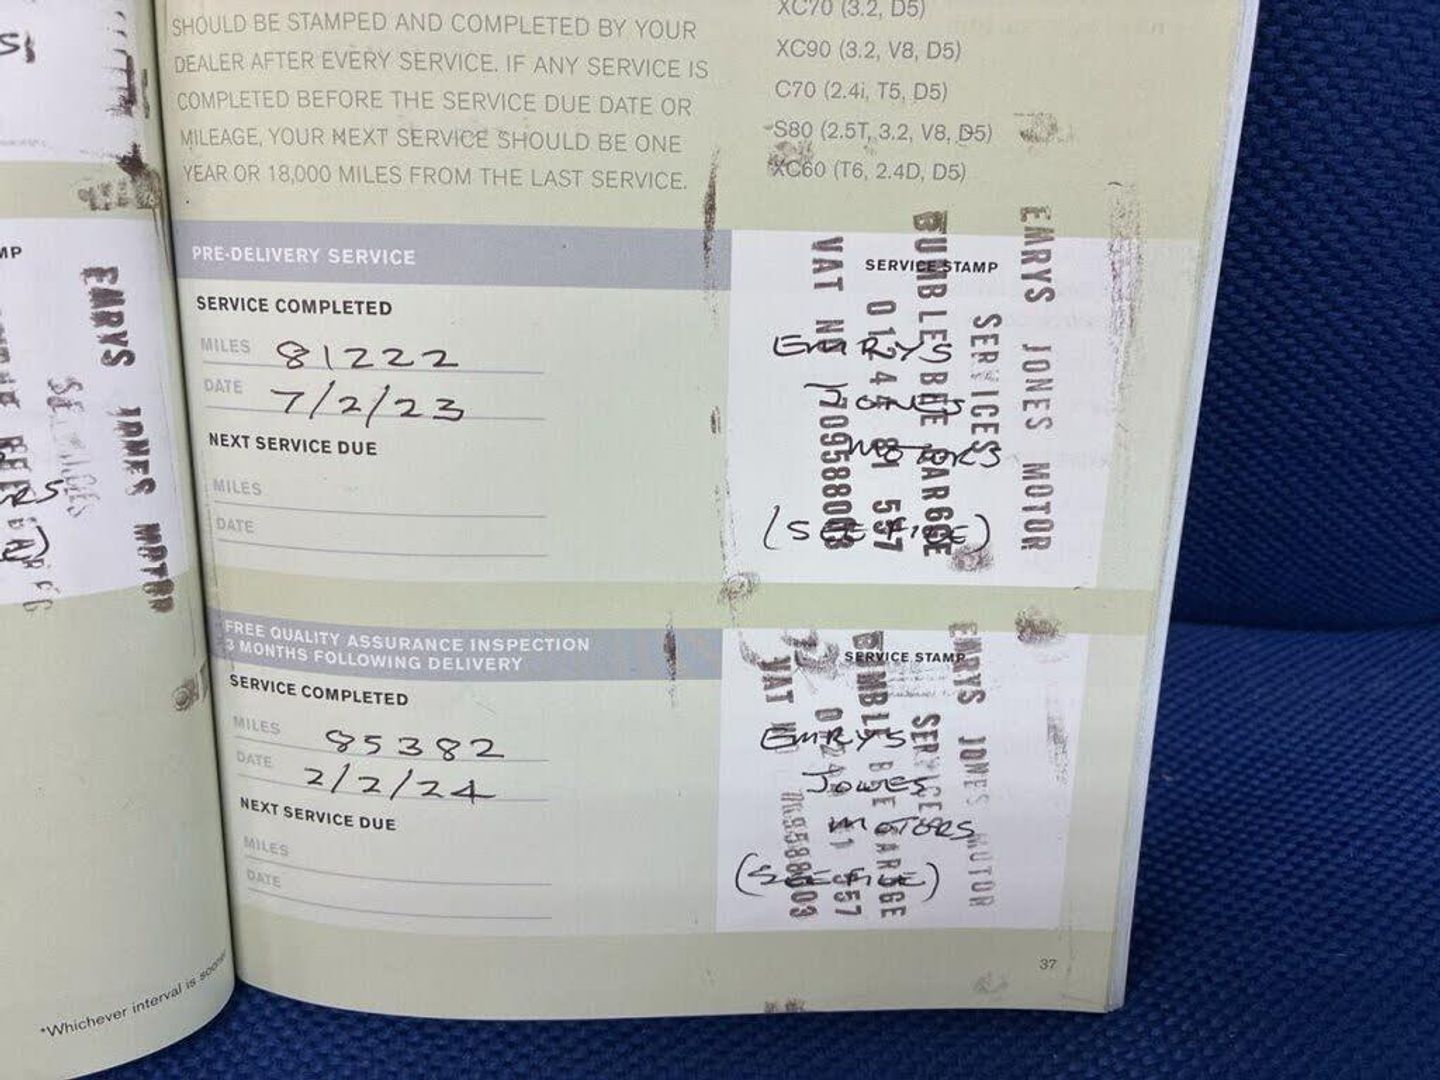 SHOULD BE STAMPED AND COMPLETED BY YOUR
DEALER AFTER EVERY SERVICE. IF ANY SERVICE IS
COMPLETED BEFORE THE SERVICE DUE DATE OR
MILEAGE, YOUR NEXT SERVICE SHOULD BE ONE
YEAR OR 18,000 MILES FROM THE LAST SERVICE.
XC70 (3.2, D5)
XC90 (3.2, V8, D5)
C70 (2.4i, T5, D5)
S80 (2.5T, 3.2, V8, D5)
XC60 (T6, 2.4D, D5)
EMRYS JONES MOTOR
SERVICES
PRE-DELIVERY SERVICE
SERVICE COMPLETED
MILES 81222
DATE 7/2/23
NEXT SERVICE DUE
MILES
DATE
SERVICE STAMP
EMRYS
JONES
MOTORS
(SEE FILE)
EMRYS JONES MOTOR
SERVICES
BUMBLEBEE GARAGE
VAT NO
FREE QUALITY ASSURANCE INSPECTION
3 MONTHS FOLLOWING DELIVERY
SERVICE COMPLETED
MILES 85382
DATE 2/2/24
NEXT SERVICE DUE
MILES
DATE
SERVICE STAMP
EMRYS
JONES
MOTORS
(SEE FILE)
EMRYS JONES MOTOR
SERVICES
BUMBLE BEE GARAGE
VAT NO
37
*Whichever interval is sooner